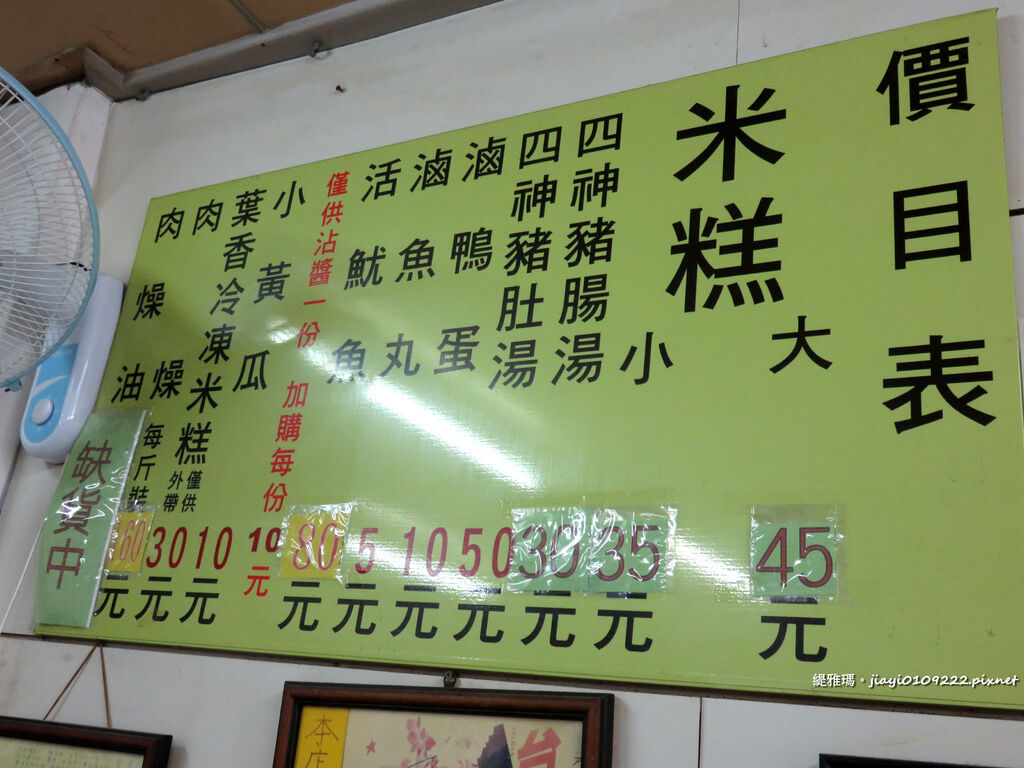 價目表
米糕
大 45元
小 35元
四神豬腸湯 30元
四神豬肚湯 50元
滷鴨蛋 10元
滷魚丸 5元
活魷魚 80元
僅供沾醬一份 加購每份 10元
小黃瓜 10元
葉香冷凍米糕 僅供外帶 30元
肉燥 每斤裝 60元
肉燥油
缺貨中
本店
緹雅瑪。jiayi0109222.pixnet